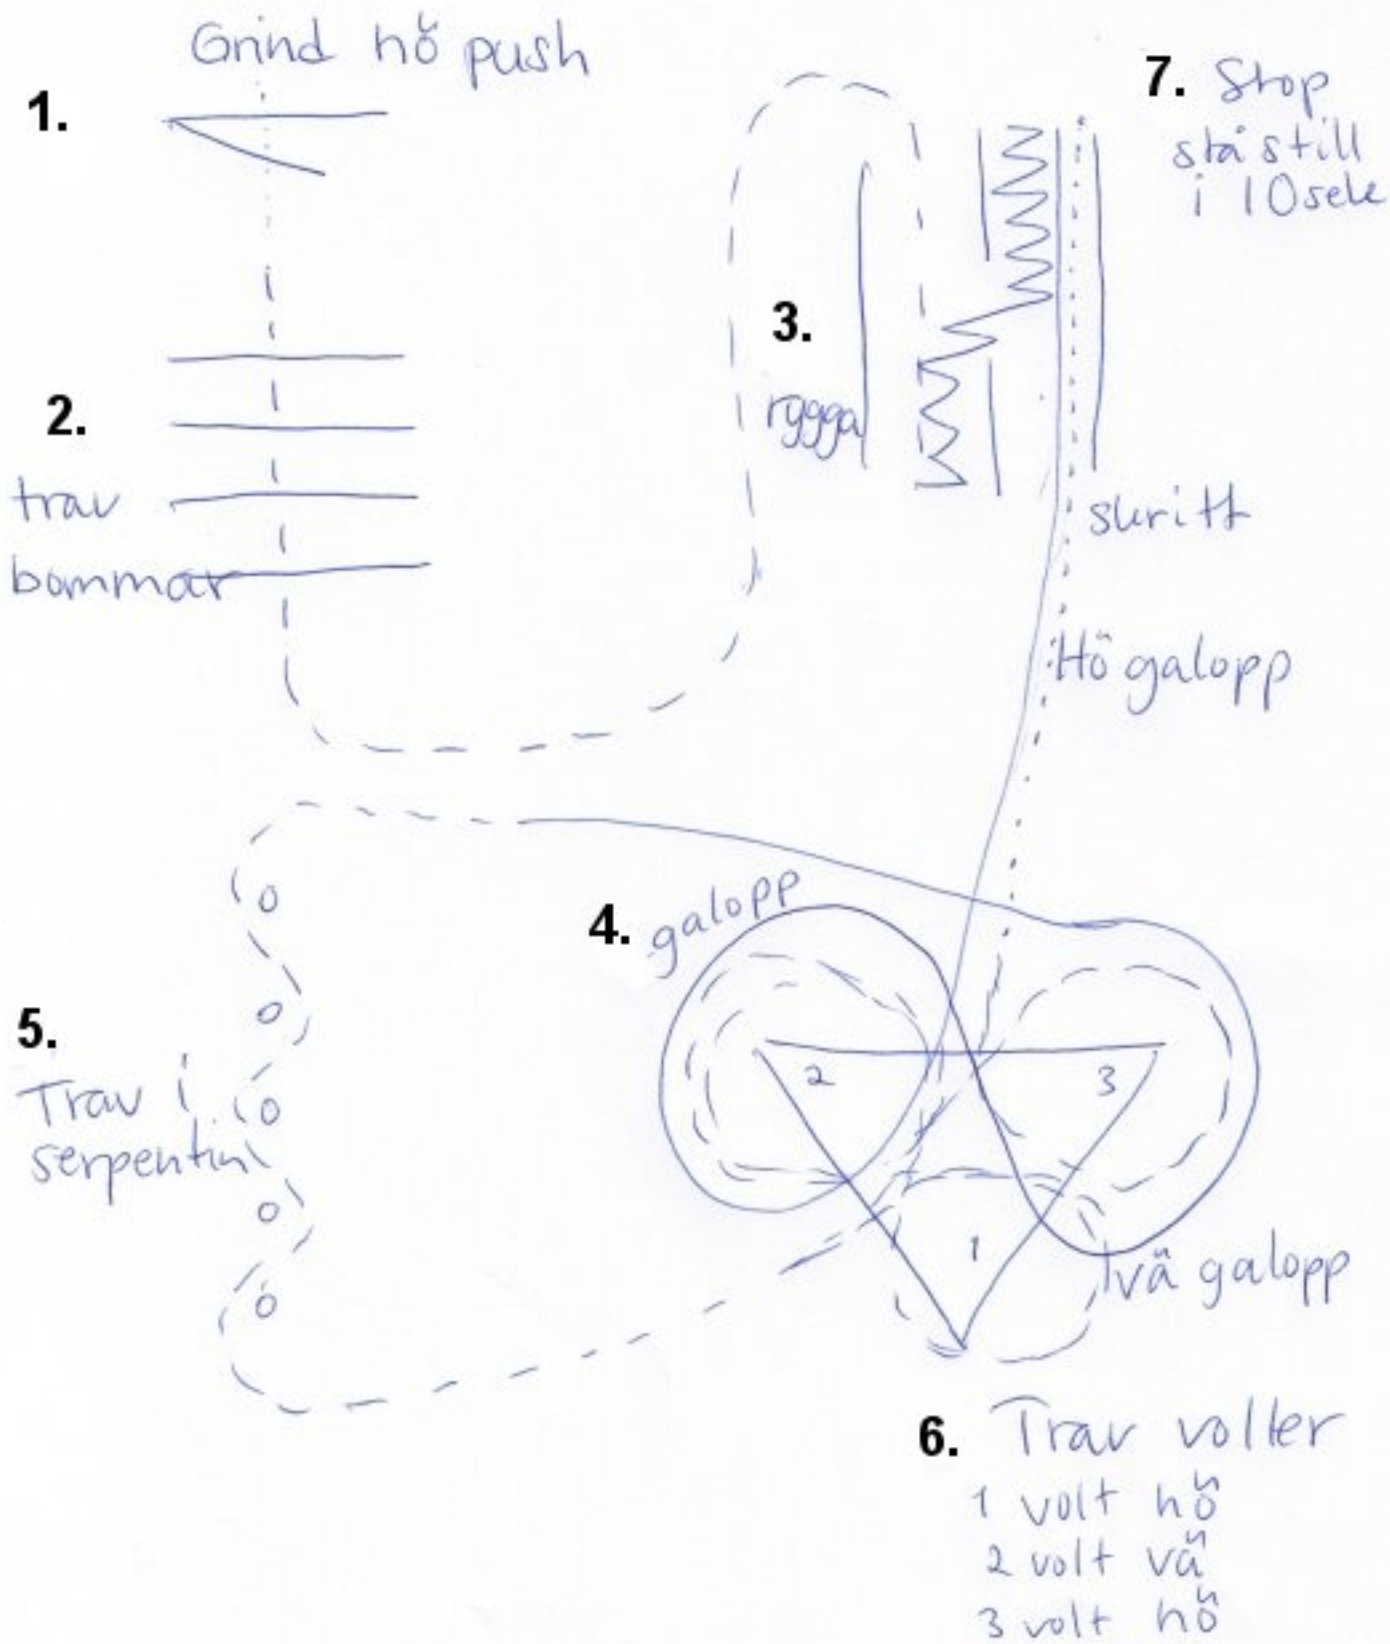 Grind hö push
1.
2.
trav
bommar
3.
rygga
7. Stop
stå still
i 10 sek
skritt
Hö galopp
4. galopp
2
3
1
vä galopp
5.
Trav i
serpentin
6. Trav volter
1 volt hö
2 volt vä
3 volt hö